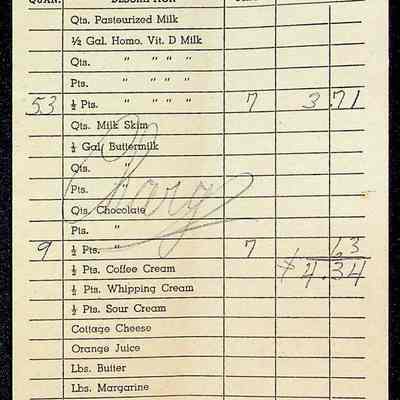 QUAN. DESCRIPTION
Qts. Pasteurized Milk
½ Gal. Homo. Vit. D Milk
Qts. " " " "
Pts. " " " "
53 ½ Pts. " " " " 7 3.71
Qts. Milk Skim
½ Gal. Buttermilk
Qts. "
Pts. "
Qts. Chocolate
Pts. "
9 ½ Pts. " 7 63
½ Pts. Coffee Cream 4.34
½ Pts. Whipping Cream
½ Pts. Sour Cream
Cottage Cheese
Orange Juice
Lbs. Butter
Lbs. Margarine